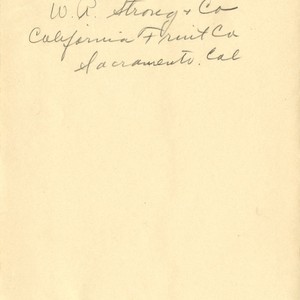 W. R. Strong & Co
California Fruit Co
Sacramento, Cal